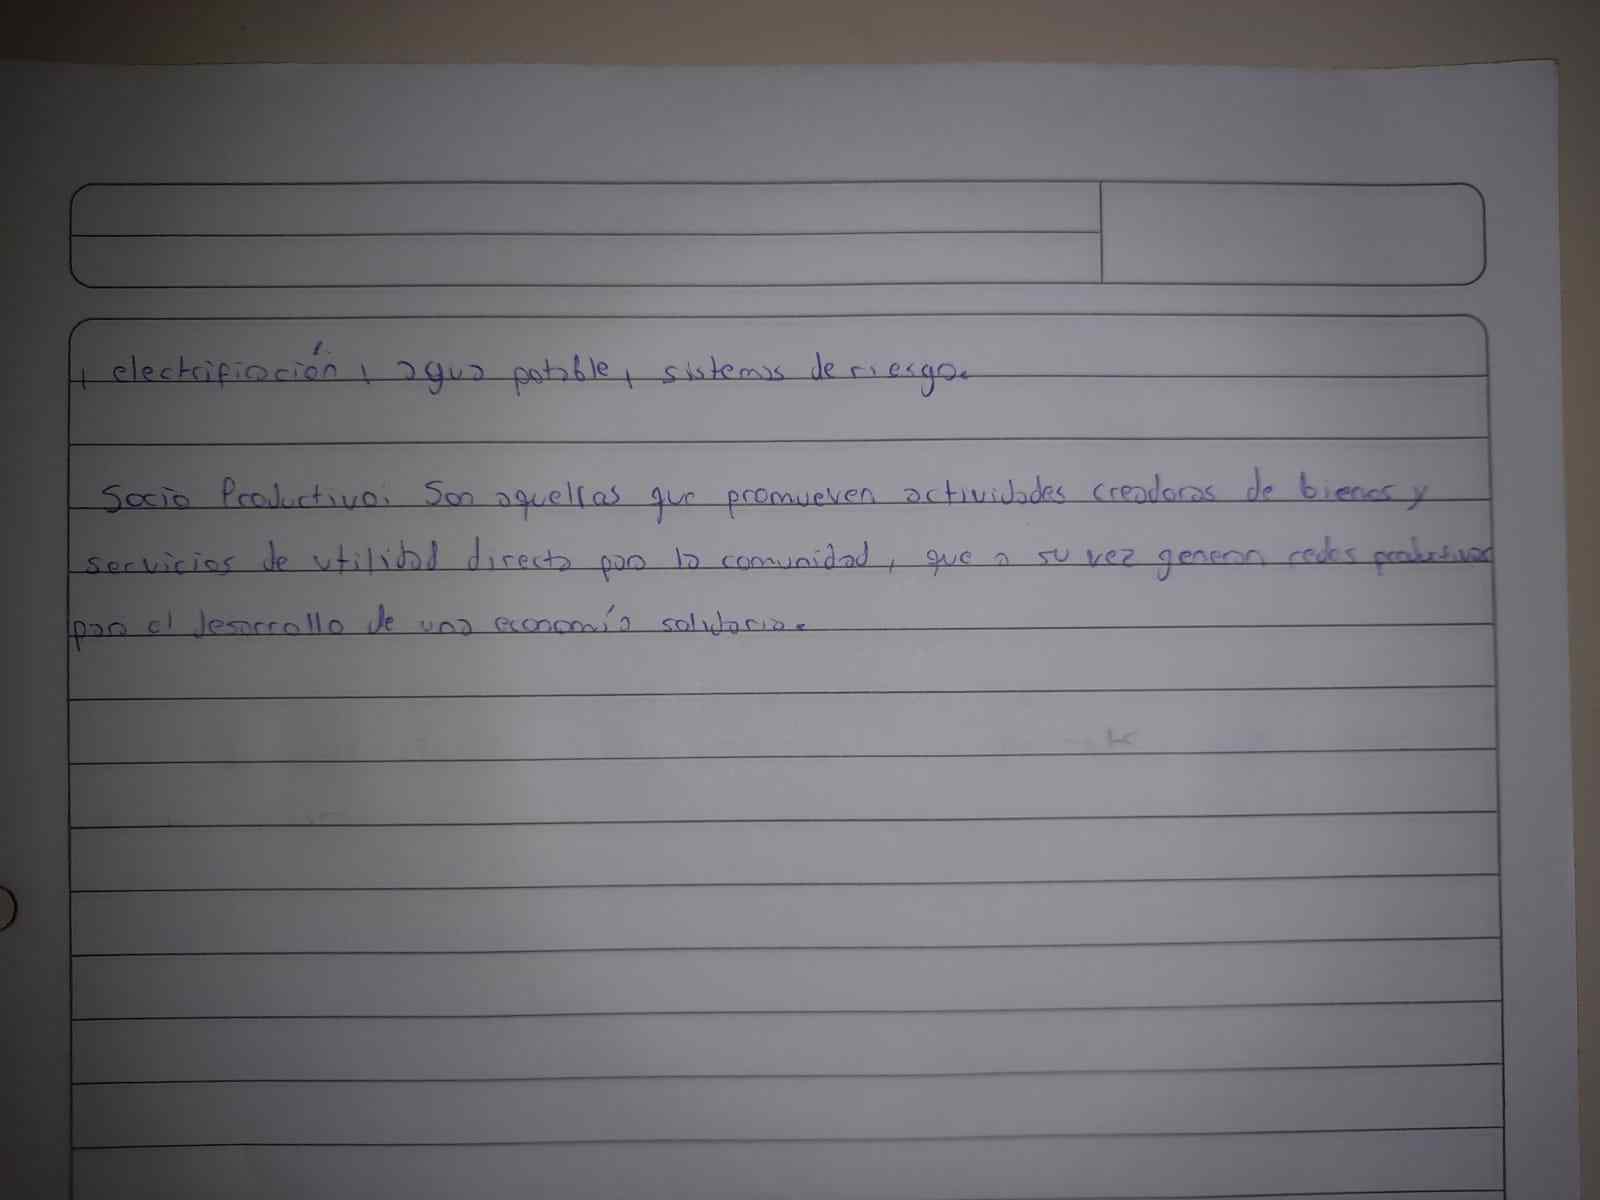 , electrifiación, agua potable, sistemas de riesgo.
Socio Productivo: Son aquellas que promueven actividades creadoras de bienes y
servicios de utilidad directa para la comunidad, que a su vez generan redes productivas
para el desarrollo de una economía solidaria.